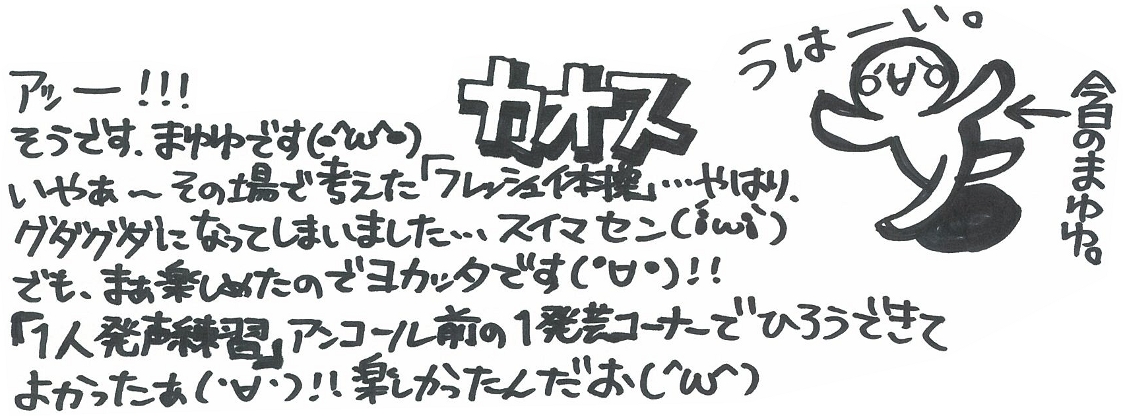 うはーい。
カオス
今日のまゆゆ。
アッー!!!
そうです、まゆゆです(・^ω^・)
いやぁ～その場で考えた「フレッシュイ体操」…やはり、
グダグダになってしまいました…スイマセン(´;ω;`)
でも、まぁ楽しめたのでヨカッタです(°∀°)!!
「1人発声練習」アンコール前の1発芸コーナーでひろうできて
よかったぁ(・∀・)!!楽しかったんだお(^ω^)